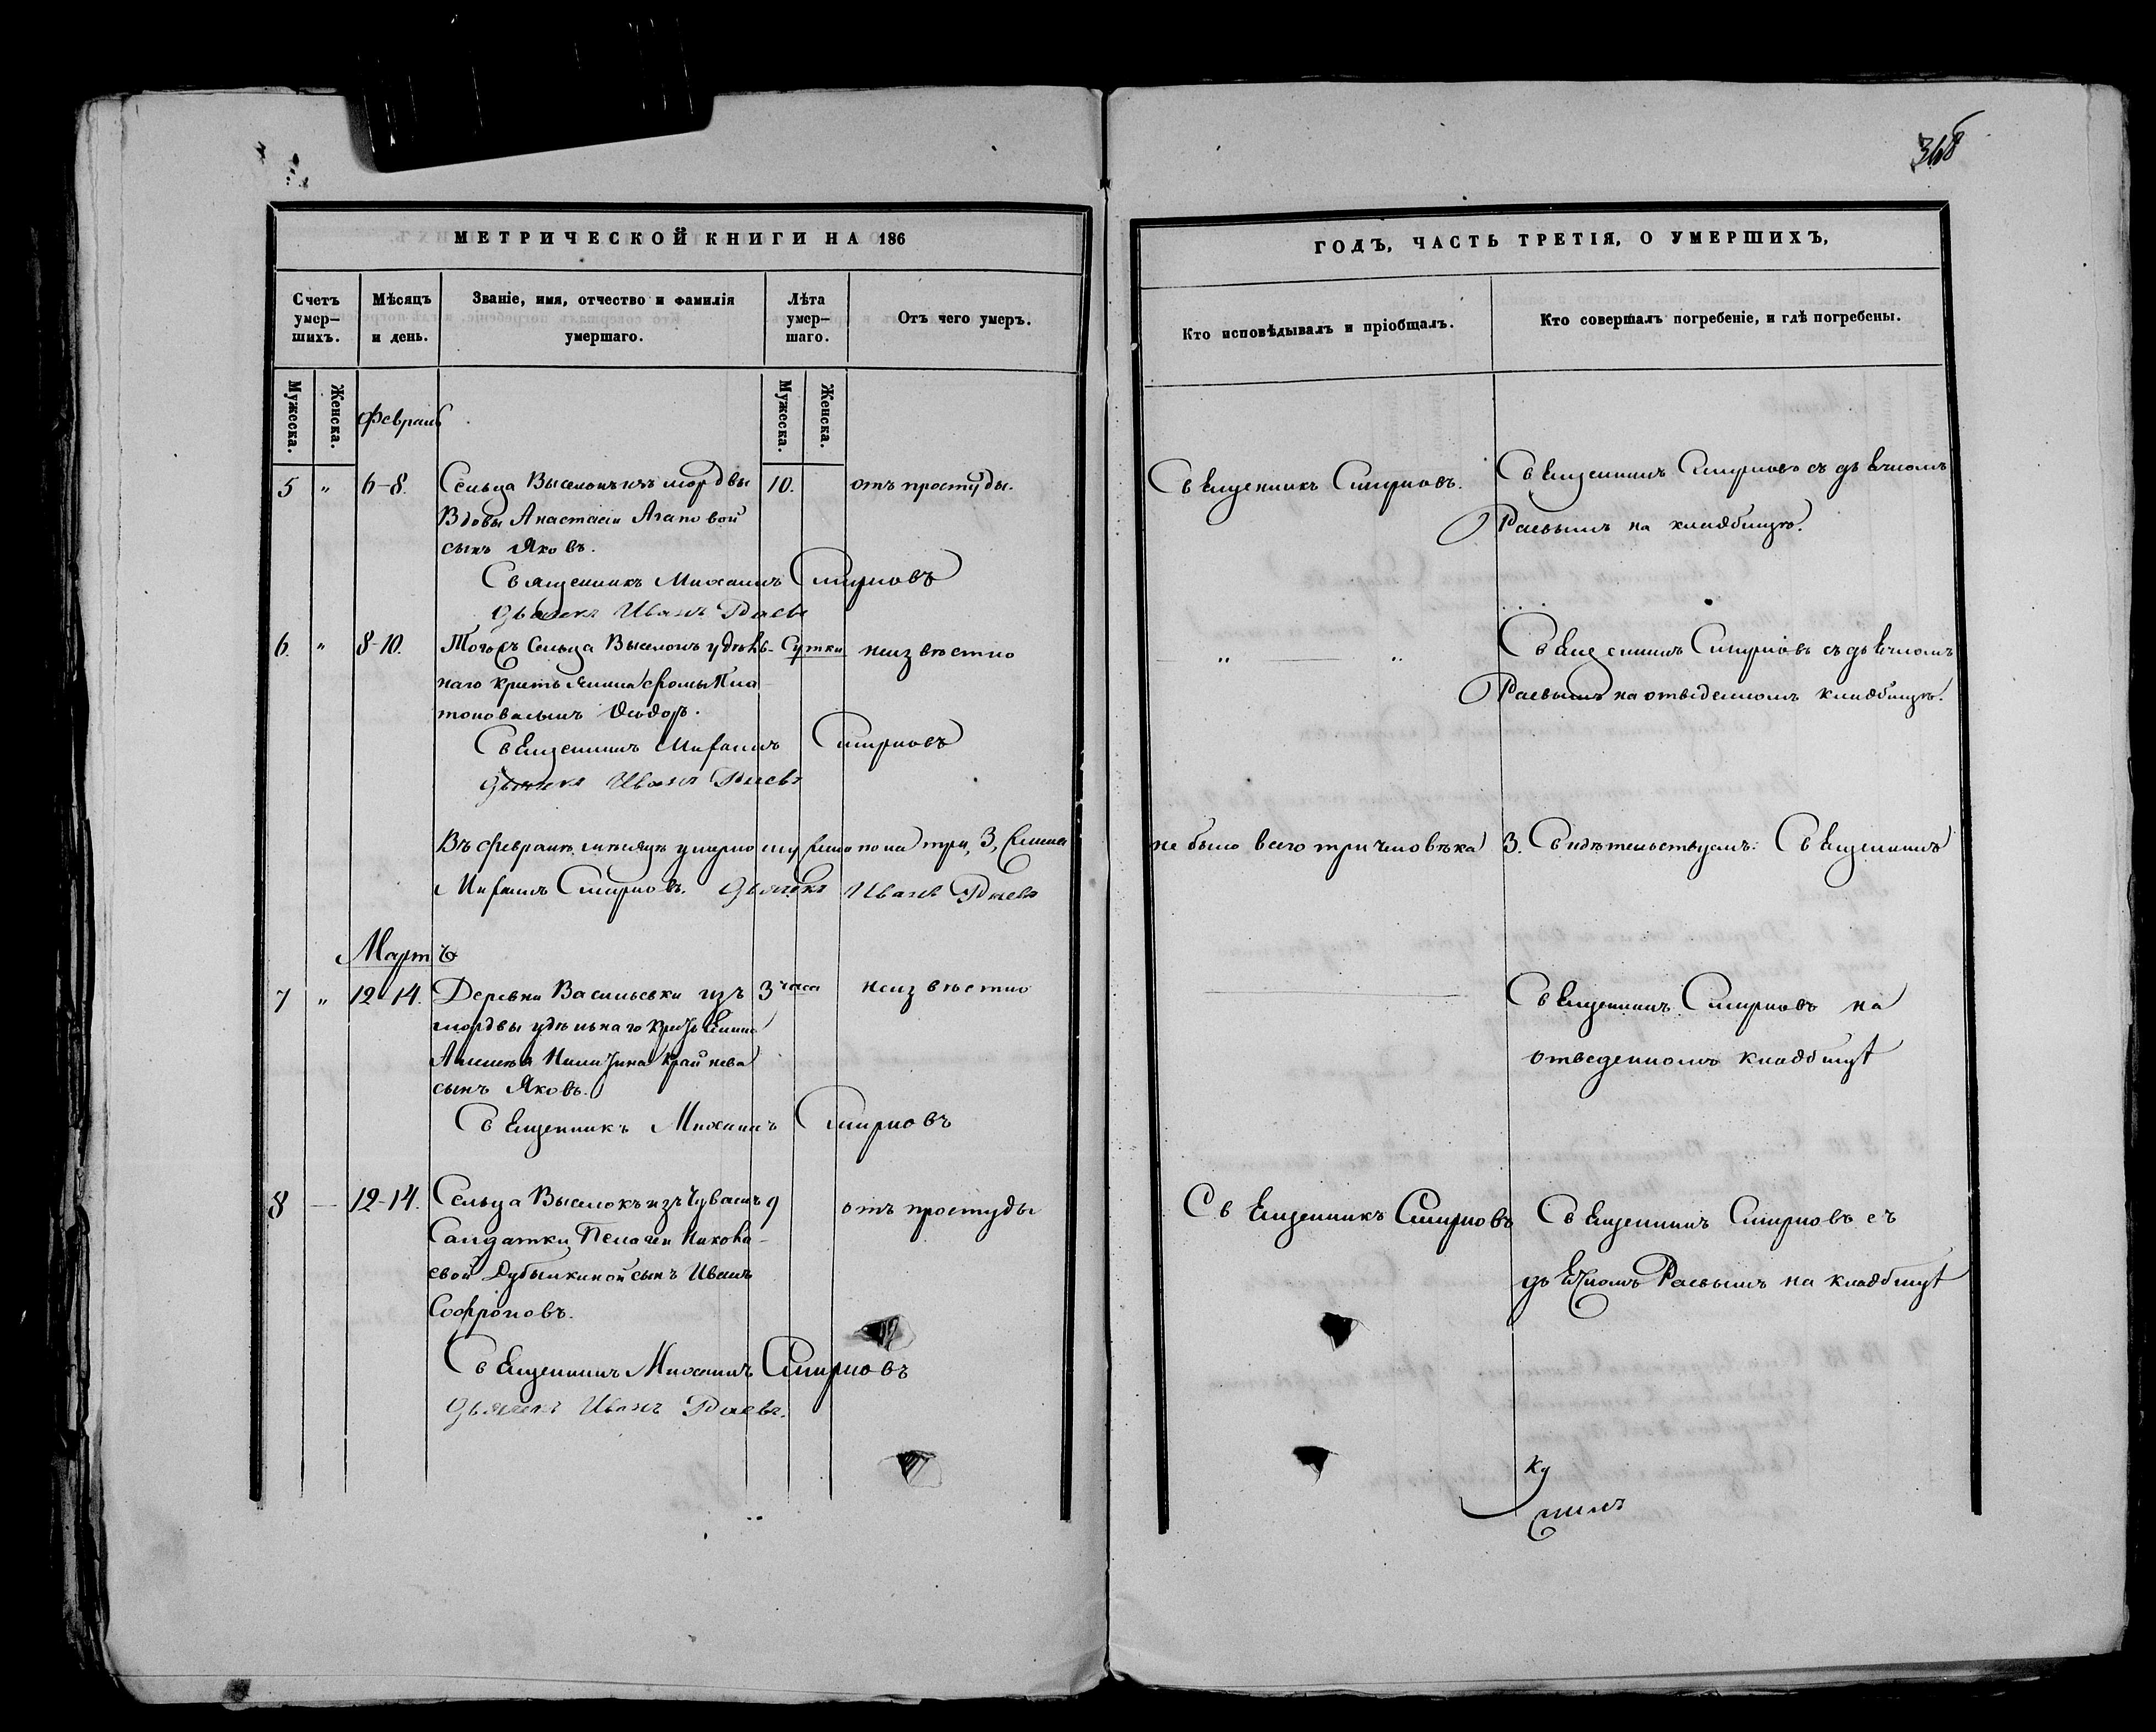 368
МЕТРИЧЕСКОЙ КНИГИ НА 186
Счетъ умер-
шихъ.
Мѣсяцъ
и день.
Званіе, имя, отчество и фамилія
умершаго.
Лѣта
умер-
шаго.
Отъ чего умеръ.
Мужеска.
Женска.
Мужеска.
Женска.
Февраль
5 " 6-8. Сельца Выселокъ изъ мордвы 10. отъ простуды.
Вдовы Анастасіи Агаповой
сынъ Яковъ.
Священникъ Михаилъ Смирновъ
Дьячекъ Иванъ Раевъ
6. " 8-10. Тогожъ Сельца Выселокъ удѣль- Сутки неизвѣстно
наго крестьянина Фомы Пла-
тонова сынъ Ѳеодоръ.
Священникъ Михаилъ Смирновъ
Дьячекъ Иванъ Раевъ
Въ Февралѣ мѣсяцѣ умерло мужеска пола три, 3, Женска
Михаилъ Смирновъ. Дьячекъ Иванъ Раевъ
Мартъ
7 " 12-14. Деревни Васильевки изъ 3 часа неизвѣстно
мордвы удѣльнаго крестьянина
Алексѣя Никитина Крайнева
сынъ Яковъ.
Священникъ Михаилъ Смирновъ
8 — 12-14. Сельца Выселокъ изъ Чувашъ 9 отъ простуды
Салдатки Пелагеи Никола-
евой Дубышкиной сынъ Иванъ
Софроновъ.
Священникъ Михаилъ Смирновъ
Дьячекъ Иванъ Раевъ.
ГОДЪ, ЧАСТЬ ТРЕТІЯ, О УМЕРШИХЪ,
Кто исповѣдывалъ и пріобщалъ.
Кто совершалъ погребеніе, и гдѣ погребены.
Священникъ Смирновъ. Священникъ Смирновъ съ дьячкомъ
Раевымъ на кладбищѣ.
" " Священникъ Смирновъ съ дьячкомъ
Раевымъ на отведенномъ кладбищѣ.
не было всего три человѣка 3. Свидѣтельствуемъ: Священникъ
Священникъ Смирновъ на
отведенномъ кладбищѣ
Священникъ Смирновъ Священникъ Смирновъ съ
дьячкомъ Раевымъ на кладбищѣ